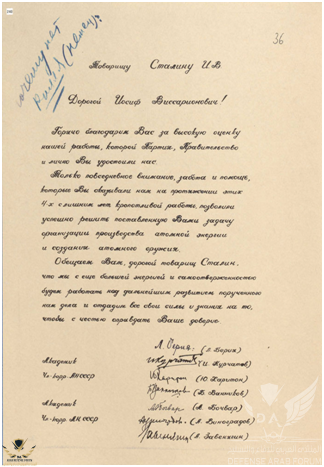 36
почему нет
Рили (немец)
Товарищу Сталину И.В.
Дорогой Иосиф Виссарионович!
Горячо благодарим Вас за высокую оценку
нашей работы, которой Партия, Правительство
и лично Вы удостоили нас.
Только повседневное внимание, забота и помощь,
которые Вы оказывали нам на протяжении этих
4-х с лишним лет кропотливой работы, позволили
успешно решить поставленную Вами задачу
организации производства атомной энергии
и создания атомного оружия.
Обещаем Вам, дорогой товарищ Сталин,
что мы с еще большей энергией и самоотверженностью
будем работать над дальнейшим развитием порученного
нам дела и отдадим все свои силы и знания на то,
чтобы с честью оправдать Ваше доверие.
Л. Берия (Л. Берия)
Академик (И. Курчатов)
Чл.-корр. АН СССР (Ю. Харитон)
(Б. Ванников)
Академик (А. Бочвар)
Чл.-корр. АН СССР (А. Виноградов)
(А. Завенягин)
DEFENSE ARAB FORUM